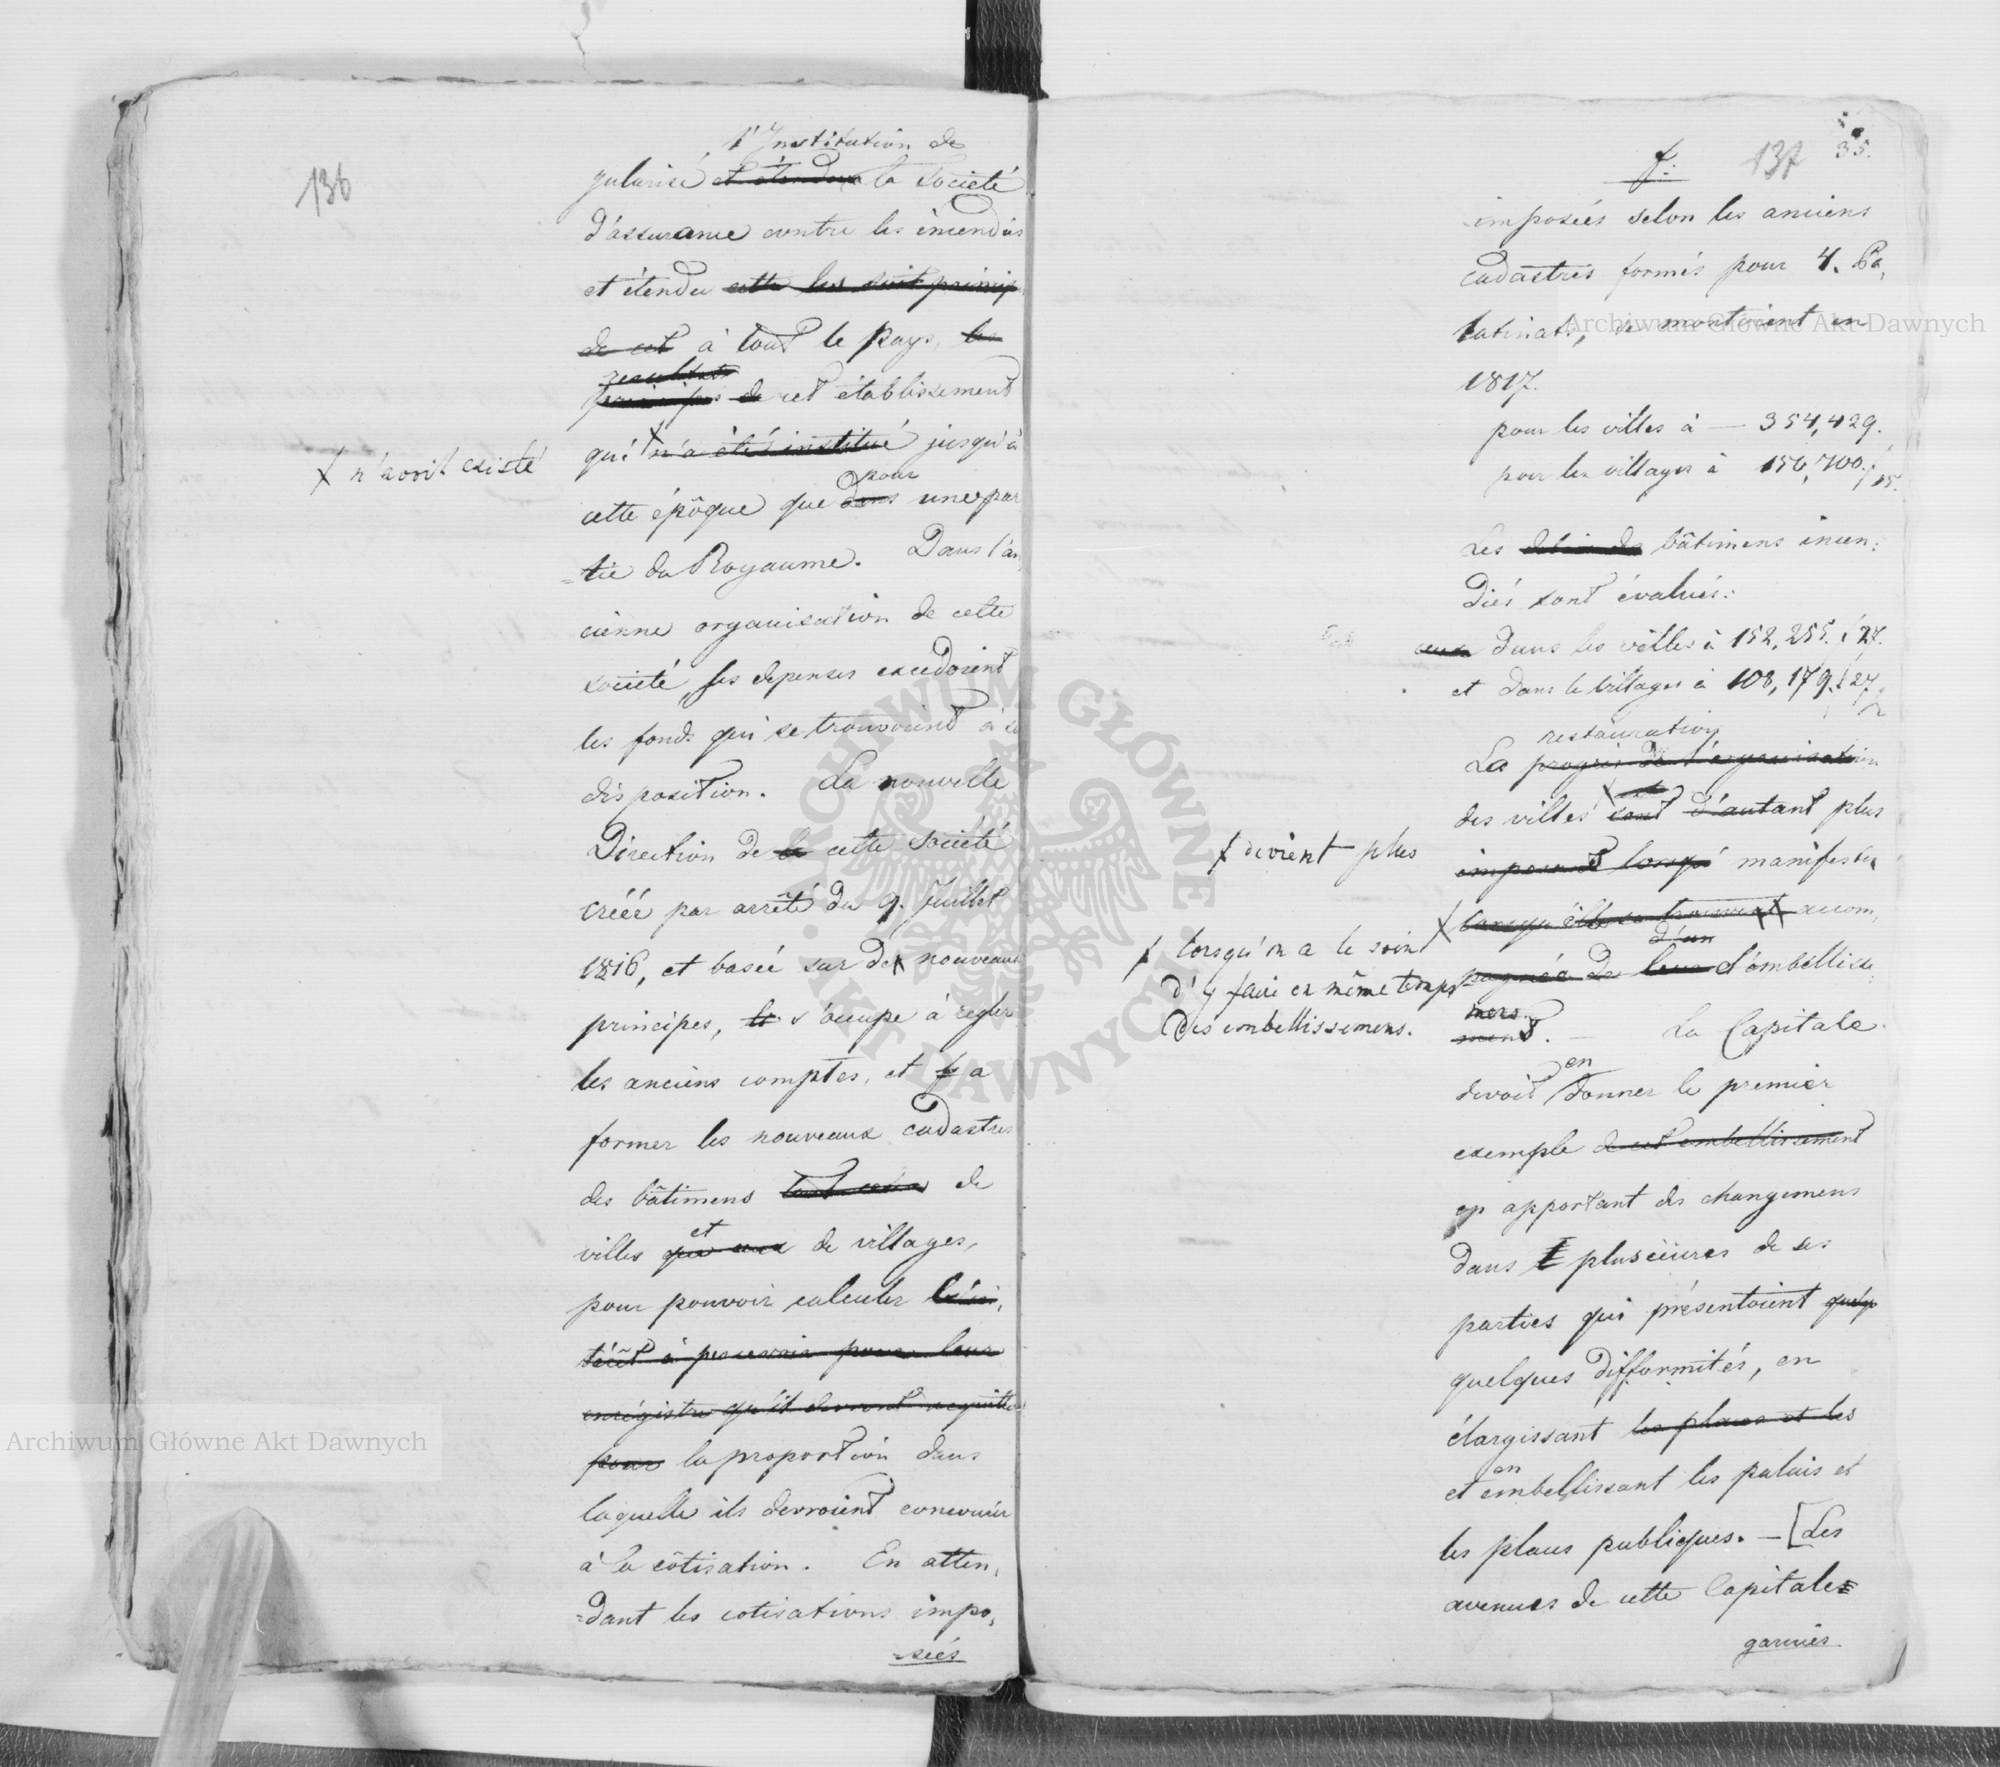 136
l'Institution de
gularisé et étendue la Société
d'assurance contre les incendies
et étendu cette les soit princip
de cet à tout le Pays, les
resultats
principes de cet établissement
qui n'a été institué jusqu'à
X n'avoit existé
pour
cette épôque que dans une par
=tie du Royaume. Dans l'an,
cienne organisation de cette
société ses depenses excédoient
les fonds qui se trouvoient à sa
disposition. La nouvelle
Direction de la cette Société
créér par arrêté du 9. Juillet
1816, et basée sur de nouveaux
principes, s'occupe à règler
les anciens comptes, et a
former les nouveaux cadastres
des bâtimens de
et
villes que ceux de villages,
pour pouvoir calculer
à percevoir pour leur
enrégistre qu'il devront acquitter
pour la proportion dans
laquelle ils devroient concourir
à la côtisation. En atten,
=dant les cotisations impo,
=seés
f. 137 35.
imposeés selon les anciens
cadastres formés pour 4. Pa,
latinats, se montoient en
1817.
pour les villes à — 354,429.
pour les villages à 156,700. /15.
Les bâtimens incen:
diés sont évalués:
ceux dans les villes à 152,255. /27.
et dans le villages à 108,179. /27
restauration
La progrès de l'organisation
des villes sont d'autant plus
X devient plus
imposant lorsqu' manifeste
lorsqu'elle se trouvent accom,
d'un
X lorsqu'on a le soin
d'y faire en même temps
des embellissemens.
pagnée de leur d'embellisse
mens
ment. — La Capitale
en
devoit donner le premier
exemple de cet embellissement
en apportant des changemens
dans plusieures de ses
parties qui présentoient quelq
quelques difformités, en
élargissant les places et les
en
et embellissant les palais et
les places publiques. — [Les
avenues de cette Capitale
garnies
Archiwum Główne Akt Dawnych
Archiwum Główne Akt Dawnych
ARCHIWUM GŁÓWNE · AKT DAWNYCH ·